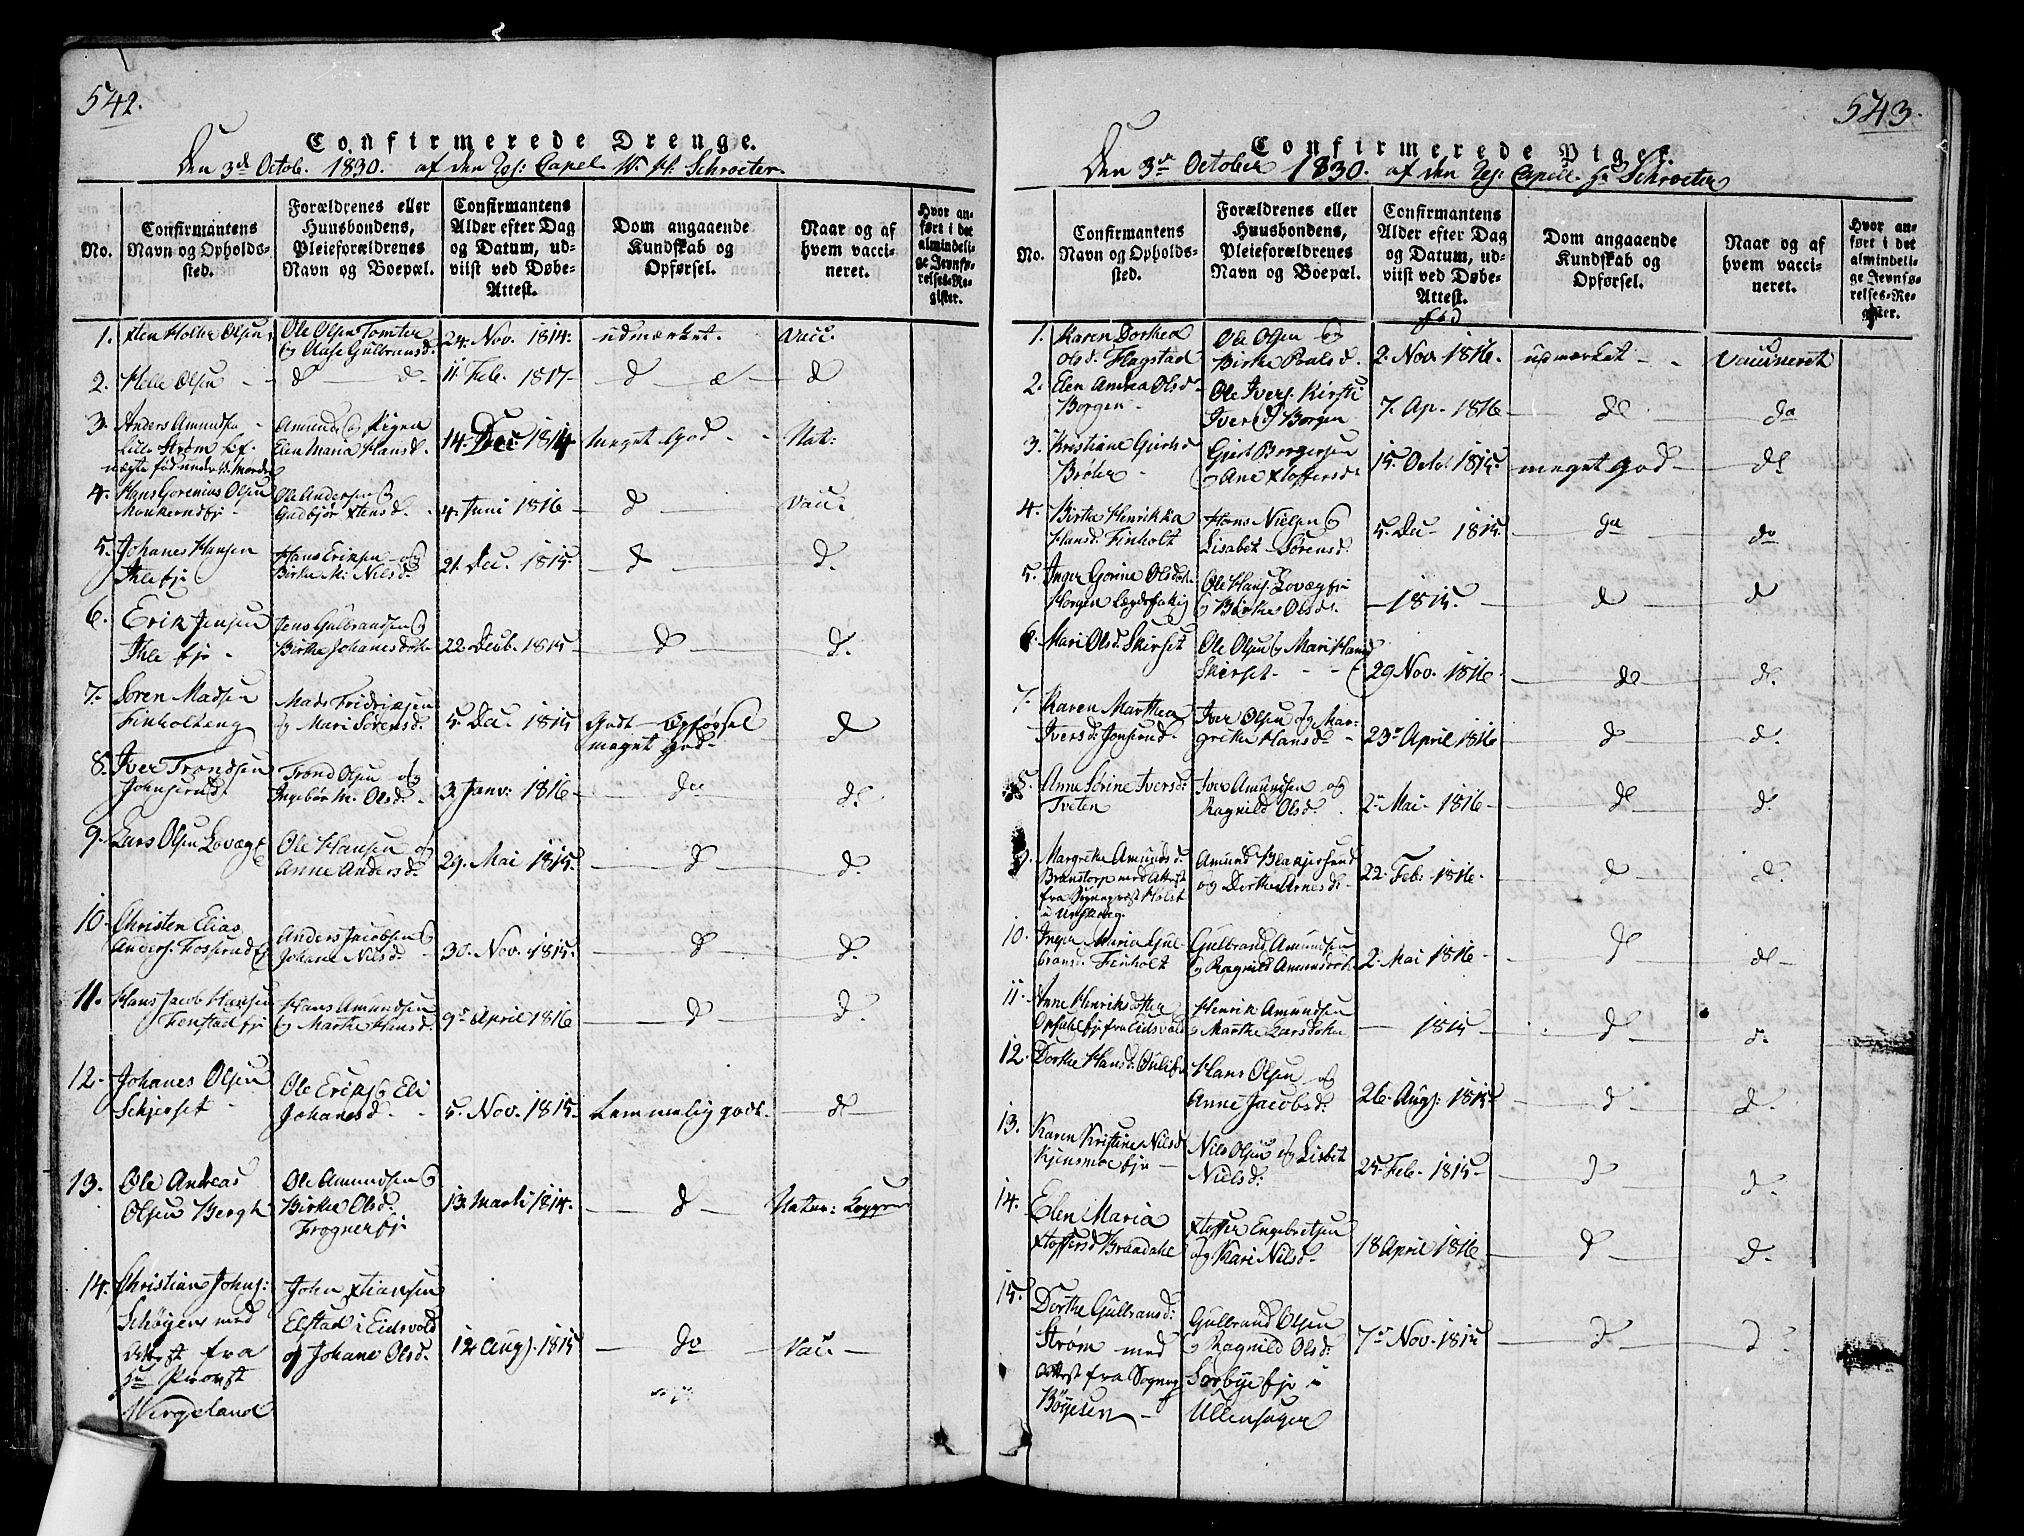 542.
Confirmerede Drenge.
Den 3de Octob. 1830. af den Capel Schroeter.
No.
Confirmantens Navn og Opholds-sted.
Forældrenes eller Huusbondens, Pleieforældrenes Navn og Boepæl.
Confirmantens Alder efter Dag og Datum, ud-viist ved Døbe-Attest.
Dom angaaende Kundskab og Opførsel.
Naar og af hvem vacci-neret.
Hvor an-ført i det almindeli-ge Jevnfø-relses-Re-gister.
1. Holm Olsen
Ole Olsen Tomter
og Aase Gulbransd.
24. Nov. 1814. udmærket. Vacc.
2. Helle Olsen d d 11 Feb. 1817 d æ d
3. Anders Amundsen
Lille Strøm
Amund
Elen Maria Hansd.
14. Dec. 1814 Meget God Nat:
4. Hans Gorenius Olsen
Ole Andersen og
Gudbjør
4. Juni 1816 d Vacc.
5. Johanes Hansen
Ihle
Hans Eriksen og
Birthe M. Nielsd.
21. Dec. 1815 d d.
6. Erik Jensen
Ihle
Jens Gulbrandsen og
Birthe Johanesdotter
22. Decb. 1815 d d.
7. Søren Madsen
Finholteng
Mads Fridriksen
og Mari Sørensd.
5. Dec. 1815 Godt Opførsel
meget god d
8. Iver Trondsen
Johnsrud.
Trond Olsen og
Ingebør M. Olsd.
3. Janv: 1816 do d
9. Lars Olsen Lovæg
Ole Hansen og
Anne Andersd.
29. Mai 1815. d d.
10. Christen Elias
Anders. Fosserud
Anders Jacobsen og
Johane Nilsd.
30. Nov. 1815. d d.
11. Hans Jacob Hansen
Fenstad
Hans Amundsen
og Marthe Hansd.
9de April 1816 d d.
12. Johanes Olsen
Schjerset
Ole Eriks. og Eli
Johanesd.
5. Nov. 1815. Temmelig godt. d
13. Ole Andreas
Olsen Bergh
Ole Amundsen og
Birthe Olsd.
Frognerej
13. Marti 1814. d Natur: Kopper
14. Christian Johns:
Schøgen med
Attest fra
Hr Provst
Wergeland
John Xtiansen
Elstad i Eidsvold
og Johane Olsd.
12 Aug. 1815 do Vac.
543.
Confirmerede Piger.
Den 3de October 1830. af den Capell. Hr Schroeter
No.
Confirmantens Navn og Opholds-sted.
Forældrenes eller Huusbondens, Pleieforældrenes Navn og Boepæl.
Confirmantens Alder efter Dag og Datum, ud-viist ved Døbe-Attest.
Dom angaaende Kundskab og Opførsel.
Naar og af hvem vacci-neret.
Hvor an-ført i det almindeli-ge Jevnfø-relses-Re-gister.
1. Karen Dorthea
Olsd. Flagstad
Ole Olsen og
Birthe Poulsd.
2. Nov. 1816. udmærket Vaccineret
2. Elen Andrea Olsd.
Borgen
Ole Ivers. Kirsti
Iversd. Borgen
7. Ap. 1816 do do
3. Kristiane Gurbsd.
Ane Xtoffersd.
15. Octob. 1815. meget god d
4. Birthe Henrikka
Hansd. Finholt
Hans Nielsen og
Lisabet Sørensd.
5. Dec 1815. do do
5. Inger Gorine Olsdatter
Horgen
Ole Hans. Lovæg
og Birthe Olsd.
1815. d d
6. Mari Olsd. Skirset
Ole Olsen og Mari Hansd
Skirset
29 Nov. 1816 d d.
7. Karen Marthea
Iversd. Jonsrud
Iver Olsen og Mar-
grethe Hansd.
23de April 1816 d d.
8. Anne Sørine Iversd:
Tveten
Iver Amundsen og
Ragnild Olsd.
2de Mai 1816 d d.
9. Margrethe Amundsd.
med Attest
fra Holst
Amund
og Dorthe Arnesd.
22. Feb. 1816 d d.
10. Inger Maria Gul-
bransd. Finholt
Gulbrand Amundsen
og Ragnild Amundsdot.
2. Mai 1816 d d
11. Anne Henriksdotter
Opsahl fra Eidsvold
Henrik Amundsen
og Marthe Larsdotter
1815 d d.
12. Dorthe Hansd.
Hans Olsen og
Anne Jacobsd:
26. Aug. 1815 d d.
13. Karen Kristine Nilsd
Kjensmoe
Nils Olsen og Lisbet
Nielsd:
25. Feb. 1815 d d.
14. Elen Maria
Xtoffersd. Brandahl
Xtoffer Engebretsen
og Kari Nilsd.
18 April 1816 d d.
15. Dorthe Gulbransd:
Strøm med
Attest fra Sogne
Børjesen
Gulbrand Olsen
og Ragnild Olsd:
Sørbye i
Ullensager
7de Nov. 1815 d d.